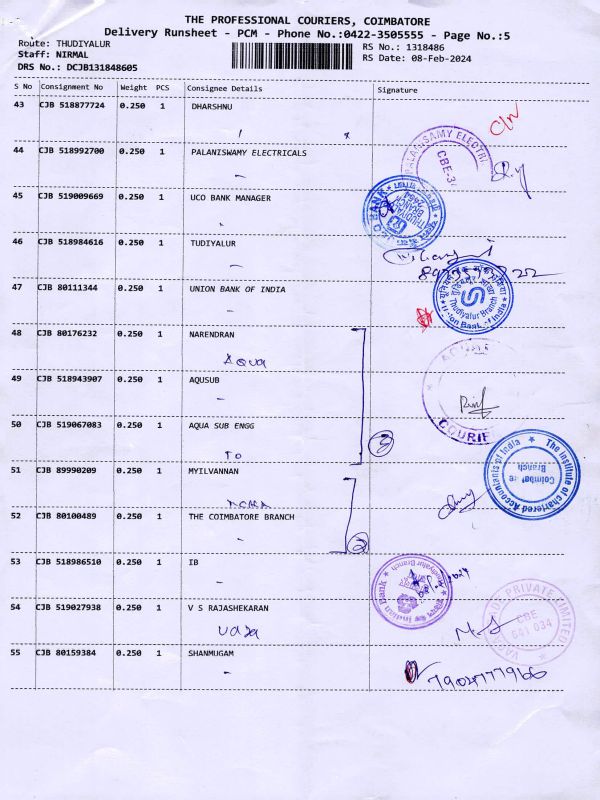 THE PROFESSIONAL COURIERS, COIMBATORE
Delivery Runsheet - PCM - Phone No.:0422-3505555 - Page No.:5
Route: THUDIYALUR
RS No.: 1318486
Staff: NIRMAL
RS Date: 08-Feb-2024
DRS No.: DCJB131848605
S No Consignment No Weight PCS Consignee Details Signature
43 CJB 518877724 0.250 1 DHARSHNU
44 CJB 518992700 0.250 1 PALANISWAMY ELECTRICALS
PALANISAMY ELECTRI
CBE-3
45 CJB 519009669 0.250 1 UCO BANK MANAGER
46 CJB 518984616 0.250 1 TUDIYALUR
47 CJB 80111344 0.250 1 UNION BANK OF INDIA
Thudiyalur Branch
48 CJB 80176232 0.250 1 NARENDRAN
Aqua
49 CJB 518943907 0.250 1 AQUSUB
COURIE
50 CJB 519067083 0.250 1 AQUA SUB ENGG
TO
3
51 CJB 89990209 0.250 1 MYILVANNAN
The Institute of chartered Accountants of India
Branch
52 CJB 80100489 0.250 1 THE COIMBATORE BRANCH
2
53 CJB 518986510 0.250 1 IB
Indian Bank
54 CJB 519027938 0.250 1 V S RAJASHEKARAN
PRIVATE LIMITED
CBE
641 034
55 CJB 80159384 0.250 1 SHANMUGAM
7904777966